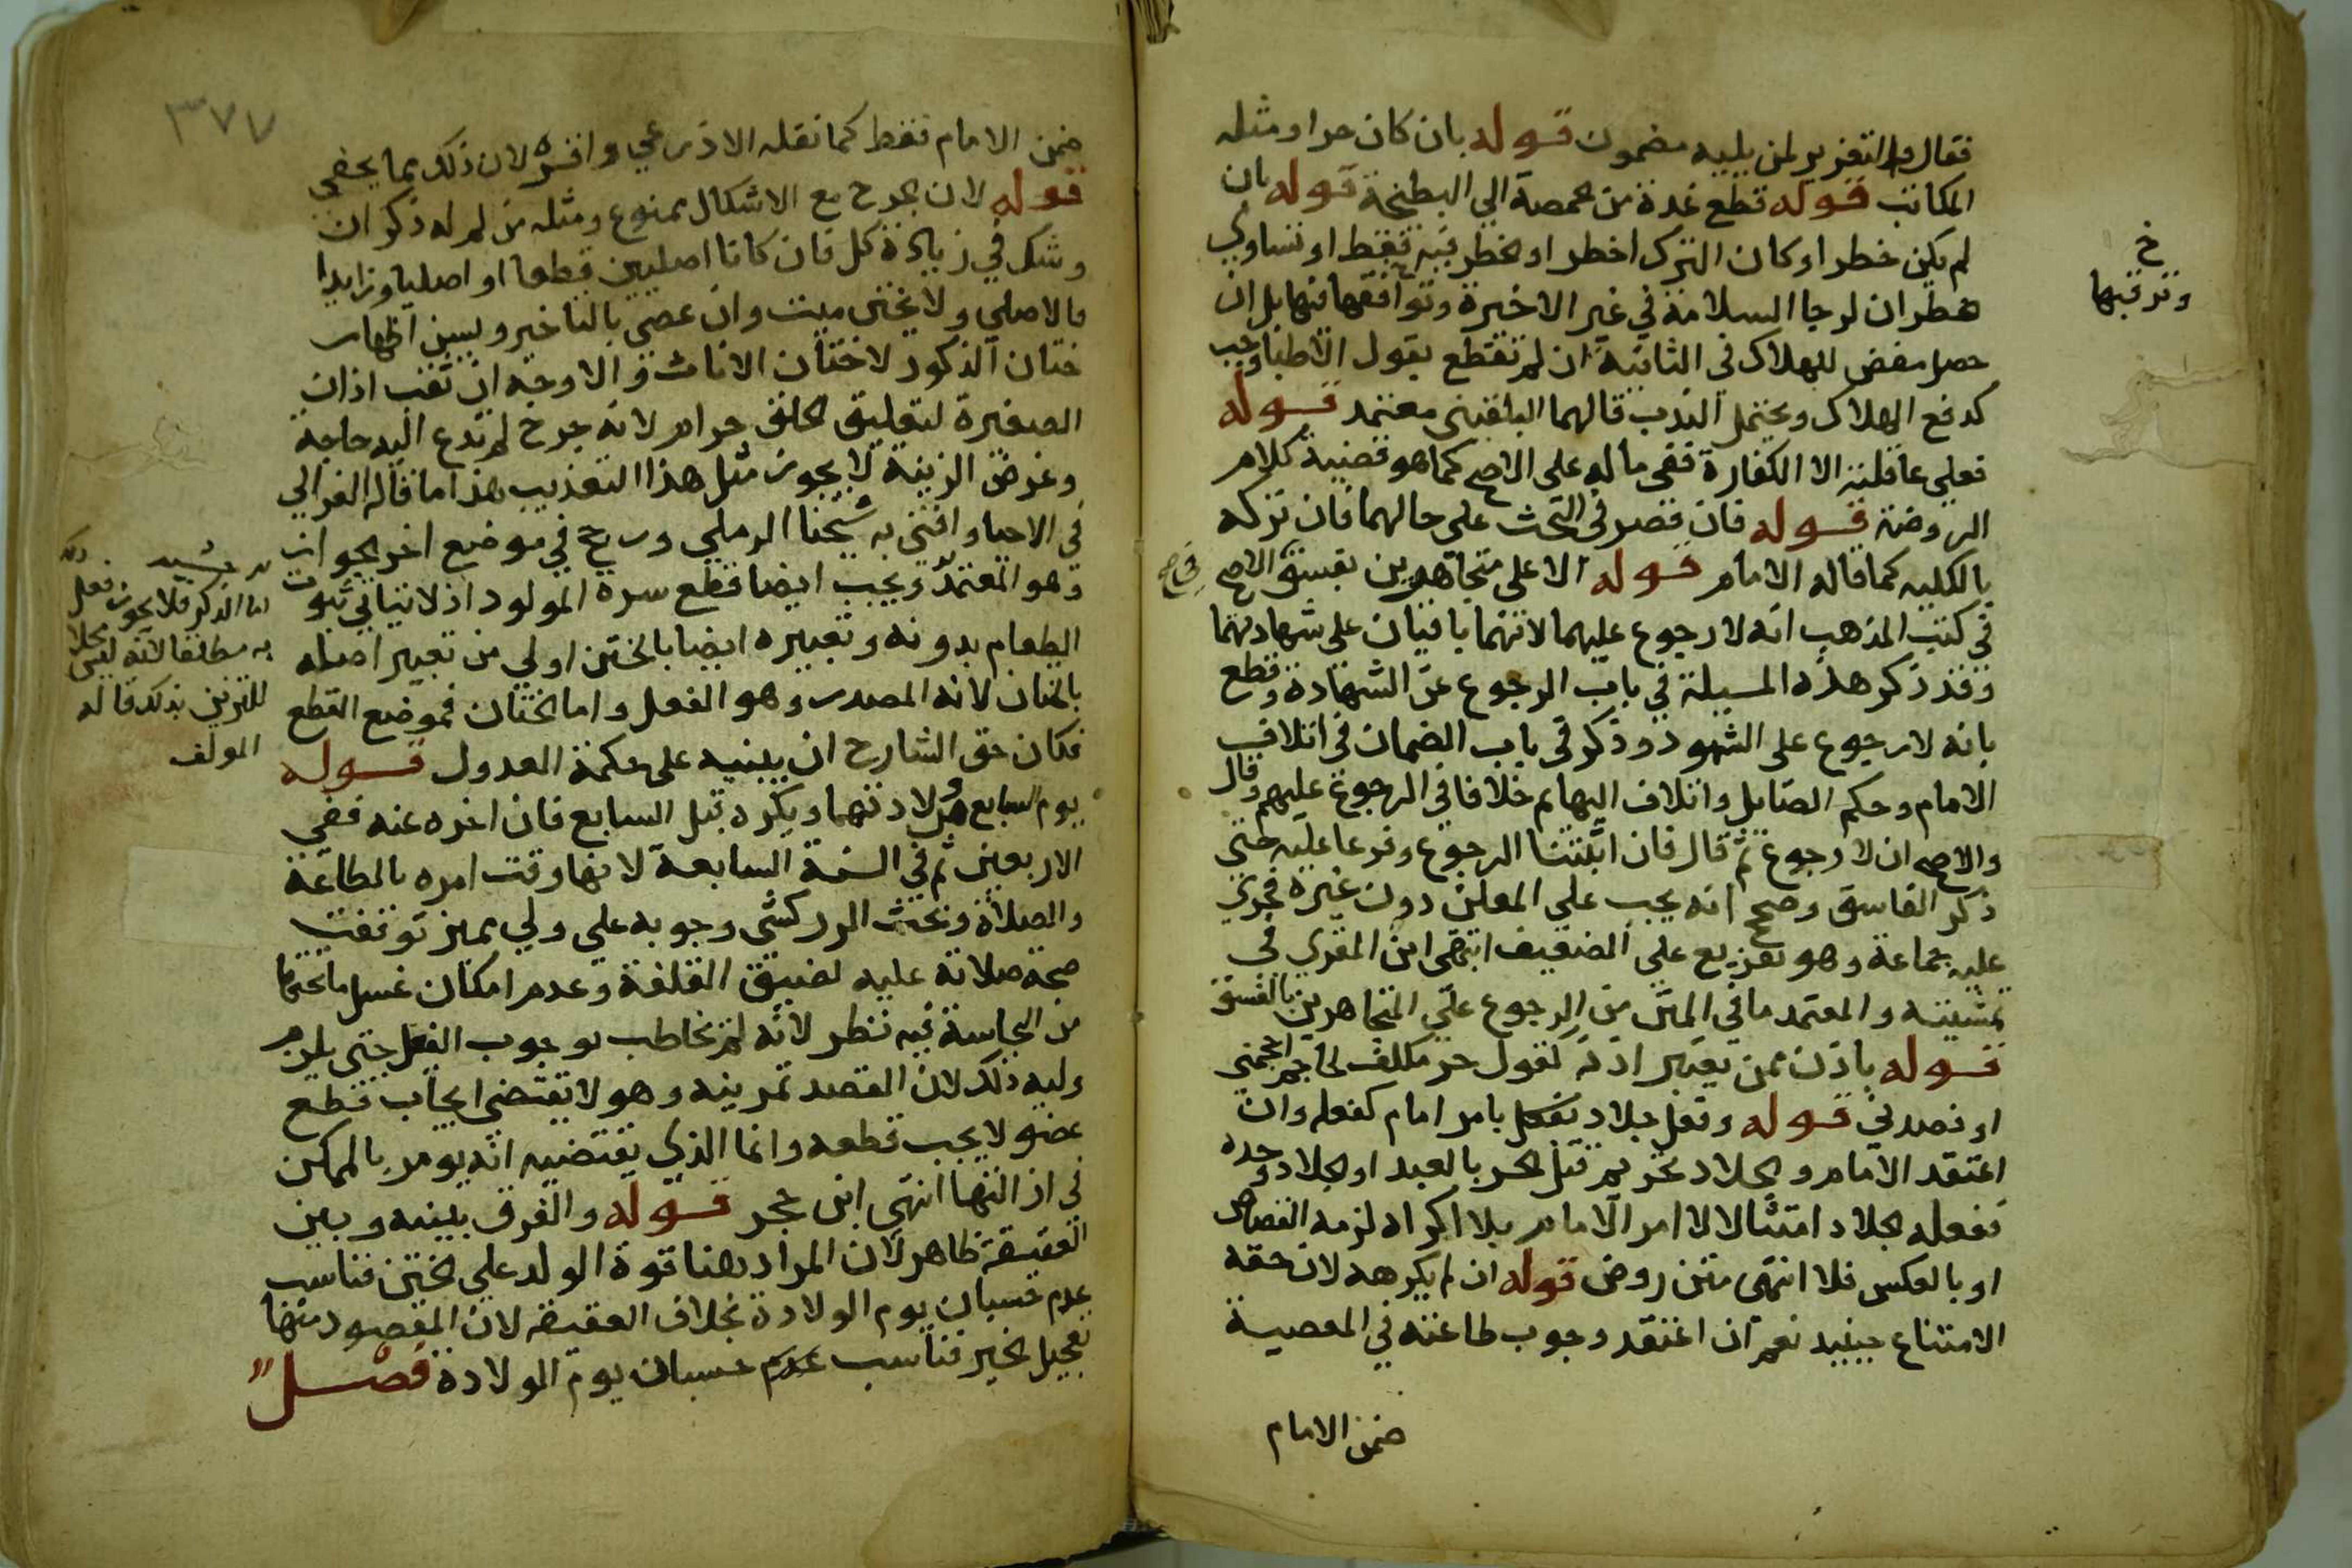 فقال والتعزير لمن يليه مضمون قوله بان كان حرا ومثله
المكاتب قوله قطع غدة من حمصة الي البطيخة قوله بان
لم يكن خطر او كان الترك اخطر او الخطر فيه فقط او تساوي
خطران لرجا السلامة في غير الاخيرة وتوافقها فيها بل ان
حصل مفض للهلاك في الثانية ان لم تقطع بقول الاطبا وجب
كدفع الهلاك ويحتمل الندب قالهما البلقيني معتمد قوله
فعلي عاقلته الا الكفارة ففي ماله على الاصح كما هو قضية كلام
الروضة قوله فان قصر في البحث على حالهما فان تركه
بالكليه كما قاله الامام قوله الا على متجاهرين بفسق الاصح
في كتب المذهب انه لا رجوع عليهما لانهما باقيان على شهادتهما
وقد ذكر هذه المسيلة في باب الرجوع عن الشهادة وقطع
بانه لا رجوع على الشهود وذكر في باب الضمان في اتلاف
الامام وحكم الصايل واتلاف البهايم خلافا في الرجوع عليهم وقال
والاصح ان لا رجوع ثم قال فان اثبتنا الرجوع وفرعا عليه حتي
ذكر الفاسق وصحح انه يجب على المعلن دون غيره فجري
عليه جماعة وهو تفريع علي الضعيف انتهى ابن المقري في
تمشيته والمعتمد ما في المتن من الرجوع علي المتجاهرين بالفسق
قوله باذن ممن يعتبر اذنه كقول حر مكلف لحاجم احجمني
او فصدني قوله وفعل جلاد بامر امام كفعله وان
اعتقد الامام والجلاد تحريم قتل الحر بالعبد او الجلاد وحده
ففعله الجلاد امتثالا لامر الامام بلا اكراه لزمه القصاص
او بالعكس فلا انتهى متن روض قوله ان لم يكرهه لان حقه
الامتناع حينيد نعم ان اعتقد وجوب طاعته في المعصية
ضمن الامام
خ
وتوقيها
٣٧٧
ضمن الامام فقط كما نقله الاذرعي واقره لان ذلك مما يخفي
قوله لان الجرح مع الاشكال ممنوع ومثله من لم له ذكران
وشك في زيادة كل فان كانا اصليين قطعا او اصليا وزايدا
فالاصلي ولا يختن ميت وان عصي بالتاخير ويسن اظهار
ختان الذكور لا ختان الاناث والاوجه ان ثقب اذان
الصغيرة لتعليق الحلق حرام لانه جرح لم تدع اليه حاجة
وغرض الزينة لا يجوز مثل هذا التعذيب هذا ما قاله الغزالي
في الاحيا وافتي به شيخنا الرملي ورجح في موضع اخر الجواز
وهو المعتمد ويجب ايضا قطع سرة المولود اذ لا يتاتي ثبوت
الطعام بدونه وتعبيره ايضا بالختن اولي من تعبير اصله
بالختان لانه المصدر وهو الفعل واما الختان فموضع القطع
فكان حق الشارح ان ينبه على حكمة العدول قوله
يوم السابع ولادتهما ويكره قبل السابع فان اخره عنه ففي
الاربعين ثم في السنة السابعة لانها وقت امره بالطاعة
والصلاة وبحث الزركشي وجوبه علي ولي مميز توقفت
صحة صلاته عليه لضيق القلفة وعدم امكان غسل ما تحتها
من النجاسة فيه نظر لانه لم يخاطب بوجوب الفعل حتى يلزم
وليه ذلك لان القصد تمرينه وهو لا يقتضي ايجاب قطع
عضو لا يجب قطعه وانما الذي يقتضيه انه يومر بالممكن
في ازالتها انتهي ابن حجر قوله والفرق بينه وبين
العقيقة ظاهر لان المراد هنا قوة الولد علي الختن فناسب
عدم حسبان يوم الولادة بخلاف العقيقة لان المقصود منها
تعجيل الخير فناسب عدم حسبان يوم الولادة فصل
اما الذكر فلا يجوز فعل
به مطلقا لانه ليس محلا
للتزين بذلك قاله
المولف